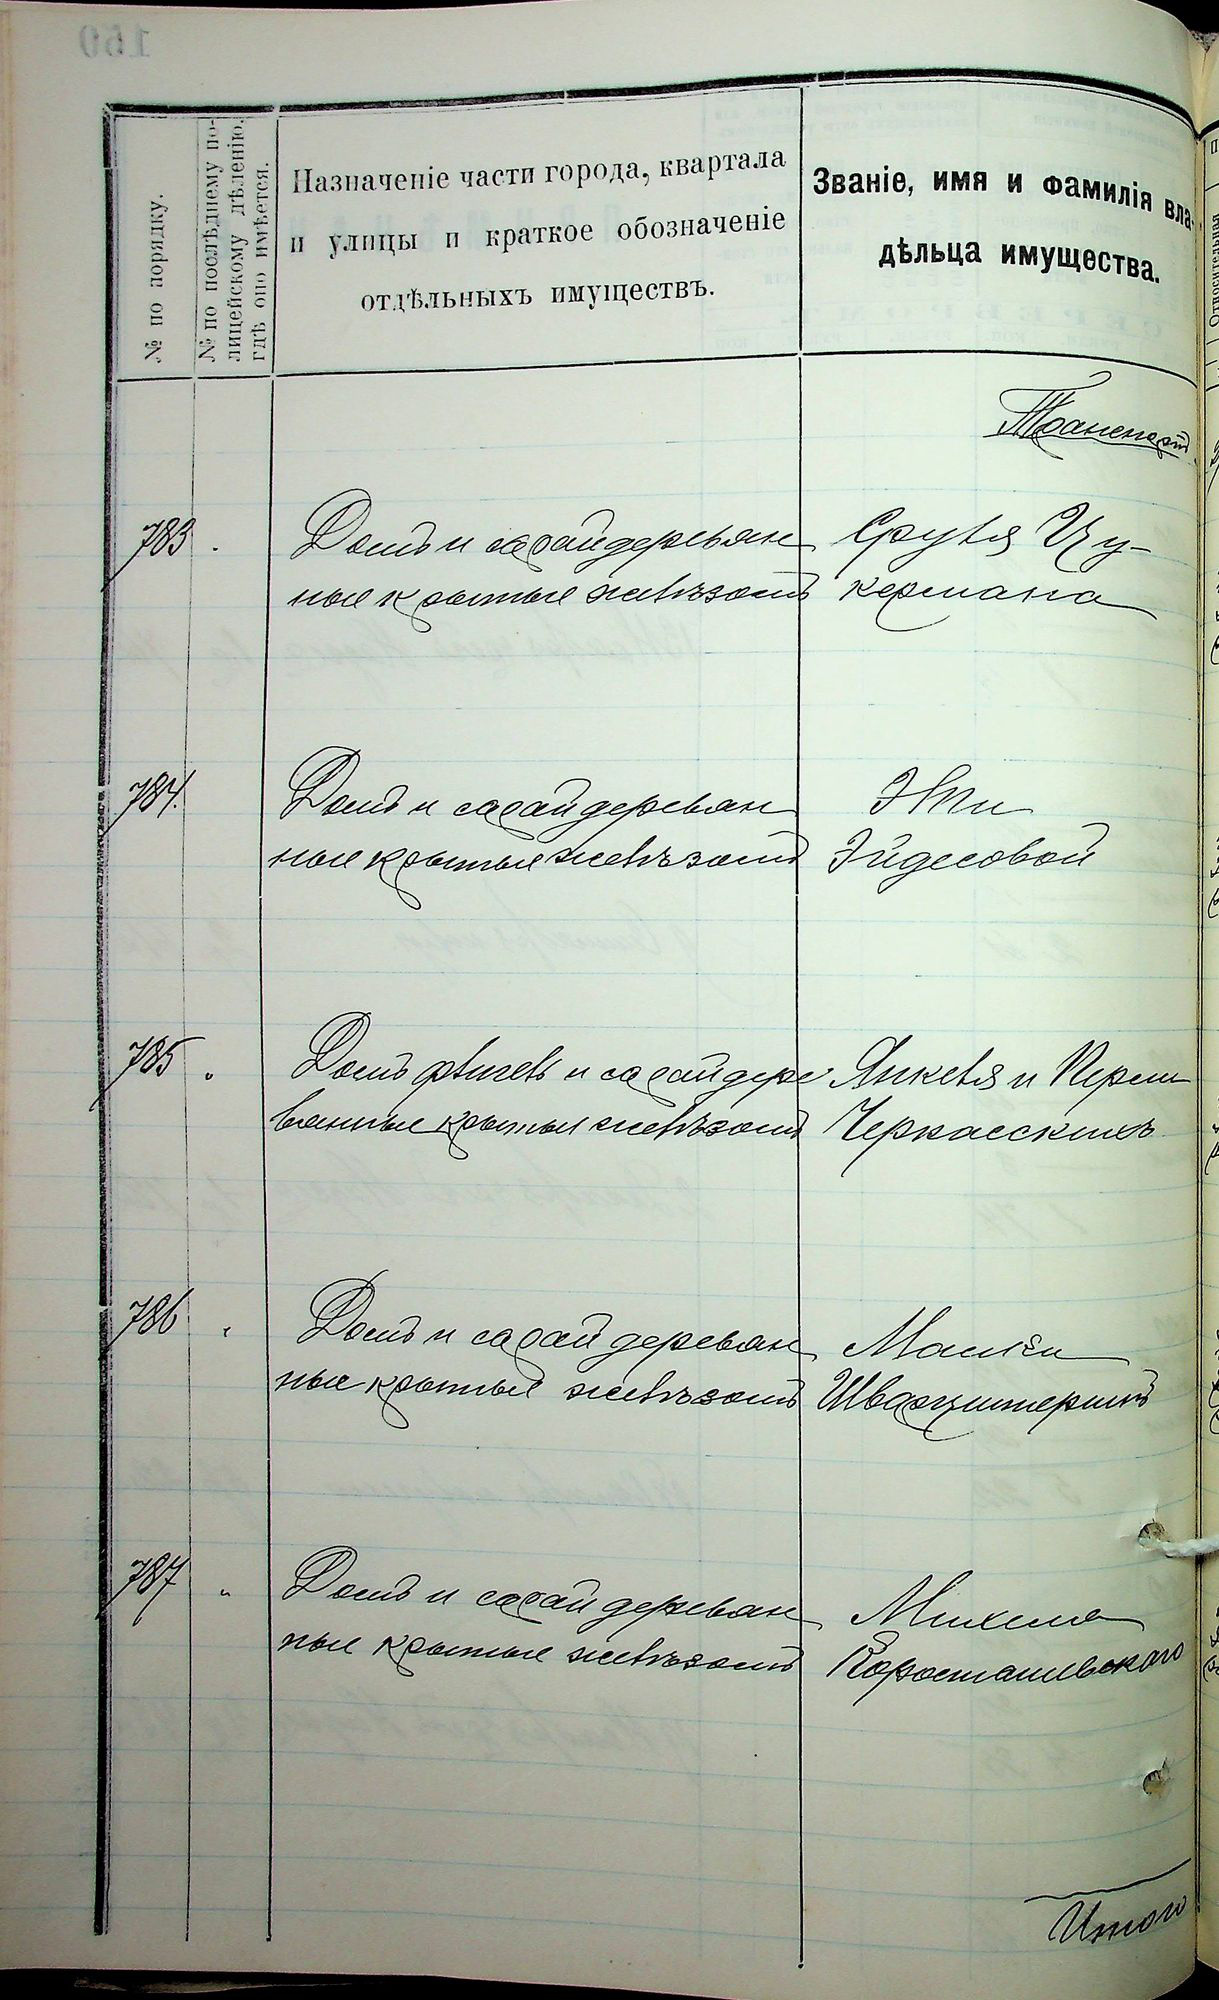 № по порядку.
№ по послѣднему по-
лицейскому дѣленію,
гдѣ оно имѣется.
Назначеніе части города, квартала
и улицы и краткое обозначеніе
отдѣльныхъ имуществъ.
Званіе, имя и фамилія вла-
дѣльца имущества.
Транспортъ
783 Домъ и сарай деревян Срутя Цу-
ные крытые желѣзомъ кермана
784. Домъ и сарай деревян Эти
ные крытые желѣзомъ Эйдесовой
785 " Домъ флигель и сарай дере Янкеля и Перли
вянные крытые желѣзомъ Черкасскихъ
786 " Домъ и сарай деревян
ные крытые желѣзомъ Шварцштернъ
787 " Домъ и сарай деревян Михеля
ные крытые желѣзомъ Коросташевскаго
Итого